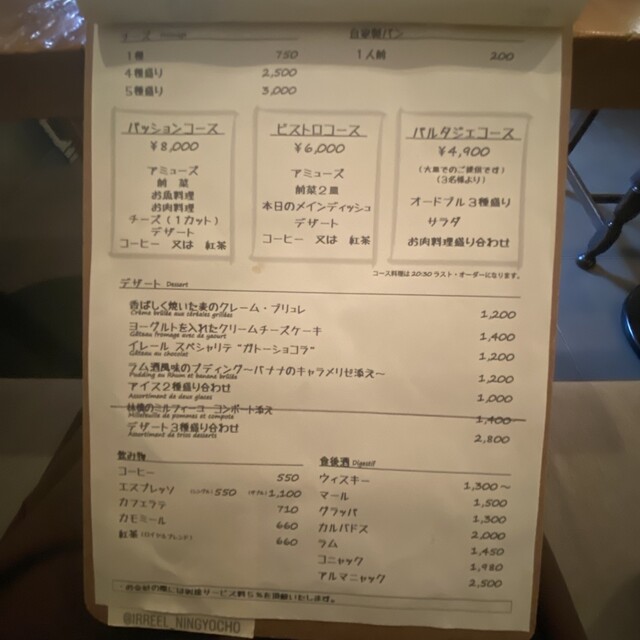 チーズ Fromage
1種 750
4種盛り 2,500
5種盛り 3,000
自家製パン
1人前 200
パッションコース
¥8,000
アミューズ
前菜
お魚料理
お肉料理
チーズ(1カット)
デザート
コーヒー 又は 紅茶
ビストロコース
¥6,000
アミューズ
前菜2皿
本日のメインディッシュ
デザート
コーヒー 又は 紅茶
パルタジェコース
¥4,900
(大皿でのご提供です)
(3名様より)
オードブル3種盛り
サラダ
お肉料理盛り合わせ
コース料理は20:30ラスト・オーダーになります。
デザート Dessert
香ばしく焼いた麦のクレーム・ブリュレ 1,200
Crème brûlée aux céréales grillées
ヨーグルトを入れたクリームチーズケーキ 1,400
Gâteau fromage avec de yaourt
イレール スペシャリテ "ガトーショコラ" 1,200
Gâteau au chocolat
ラム酒風味のプディング～バナナのキャラメリゼ添え～ 1,200
Pudding au rhum et banane brûlée
アイス2種盛り合わせ 1,000
Assortiment de deux glaces
林檎のミルフィーユ コンポート添え 1,400
Millefeuille de pommes et compote
デザート3種盛り合わせ 2,800
Assortiment de trois desserts
飲み物
コーヒー 550
エスプレッソ (シングル)550 (ダブル)1,100
カフェラテ 710
カモミール 660
紅茶(ロイヤルブレンド) 660
食後酒 Digestif
ウィスキー 1,300～
マール 1,500
グラッパ 1,300
カルバドス 2,000
ラム 1,450
コニャック 1,980
アルマニャック 2,500
・お会計の際には別途サービス料5%を頂戴いたします。
@IRREEL_NINGYOCHO